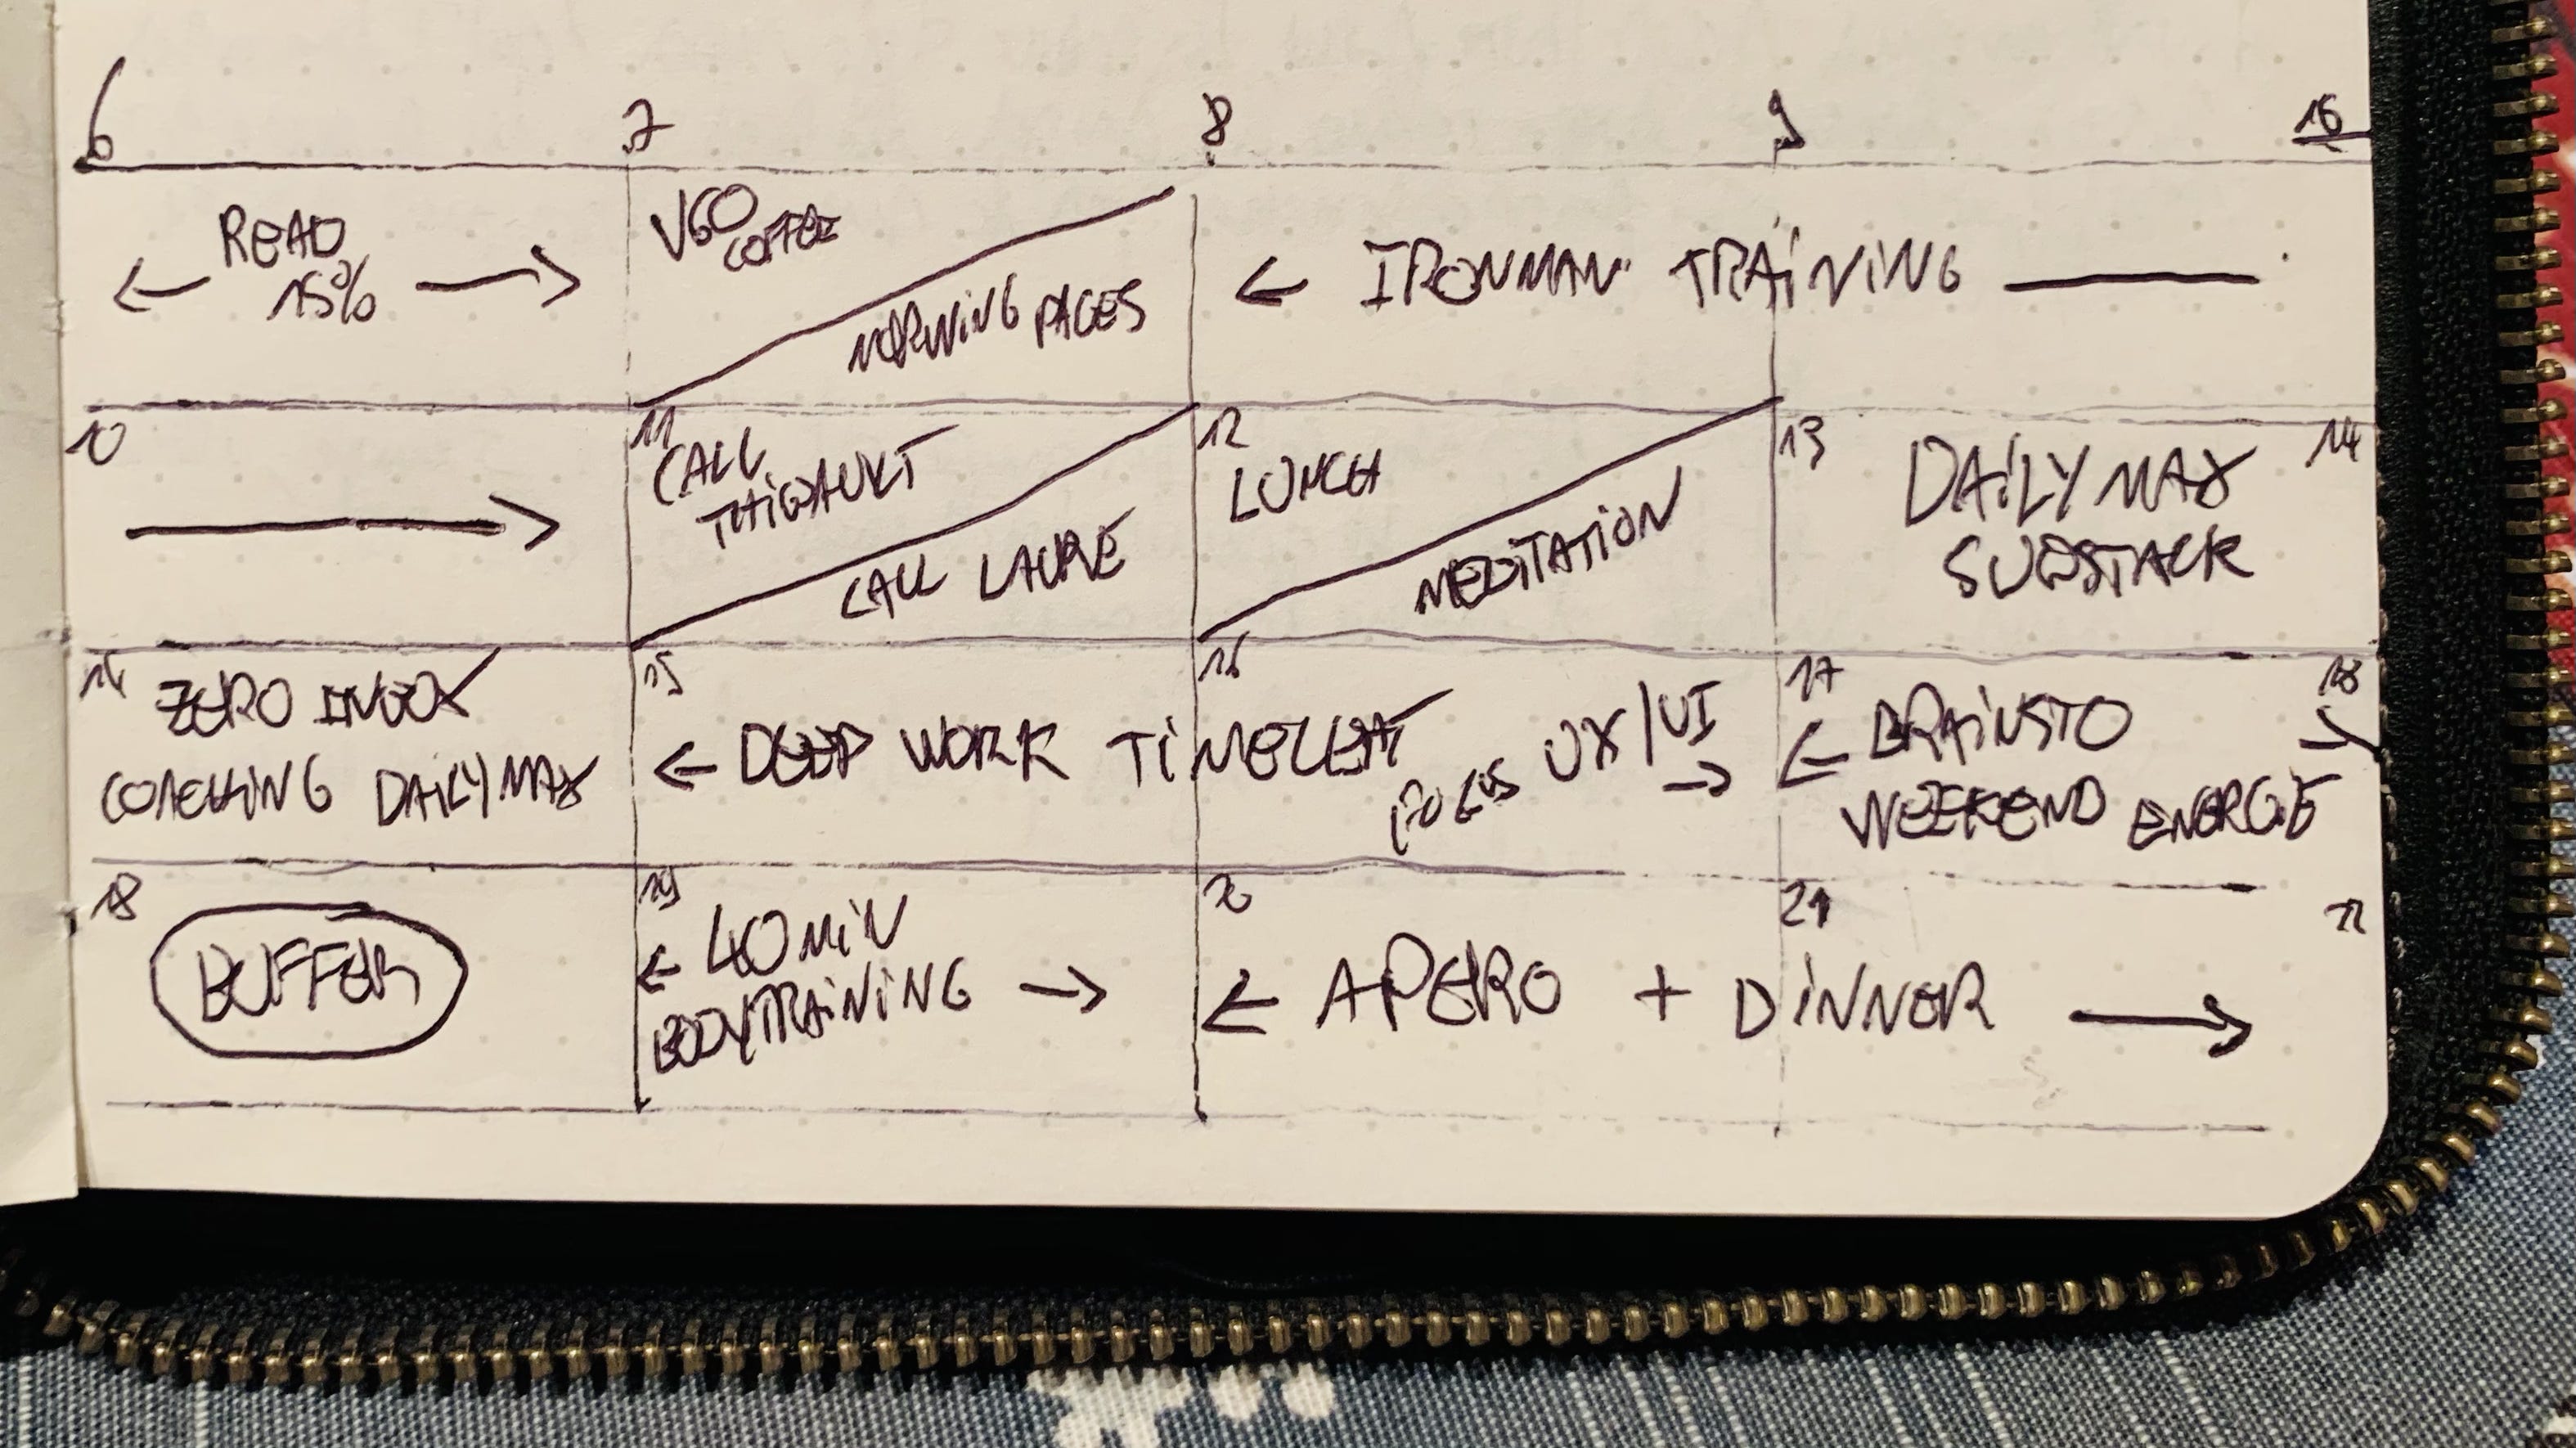 6 7 8 9 10
READ
15%
VGO
COFFEE
MORNING PAGES
IRONMAN TRAINING
10 11 12 13 14
CALL
THIBAULT
CALL LAURE
LUNCH
MEDITATION
DAILY MAX
SUBSTACK
14 15 16 17 18
ZERO INBOX
COACHING DAILYMAX
DEEP WORK
FOCUS UX/UI
BRAINSTO
WEEKEND ENERGIE
18 19 20 21 22
BUFFER
40 MIN
BODYTRAINING
APERO + DINNER